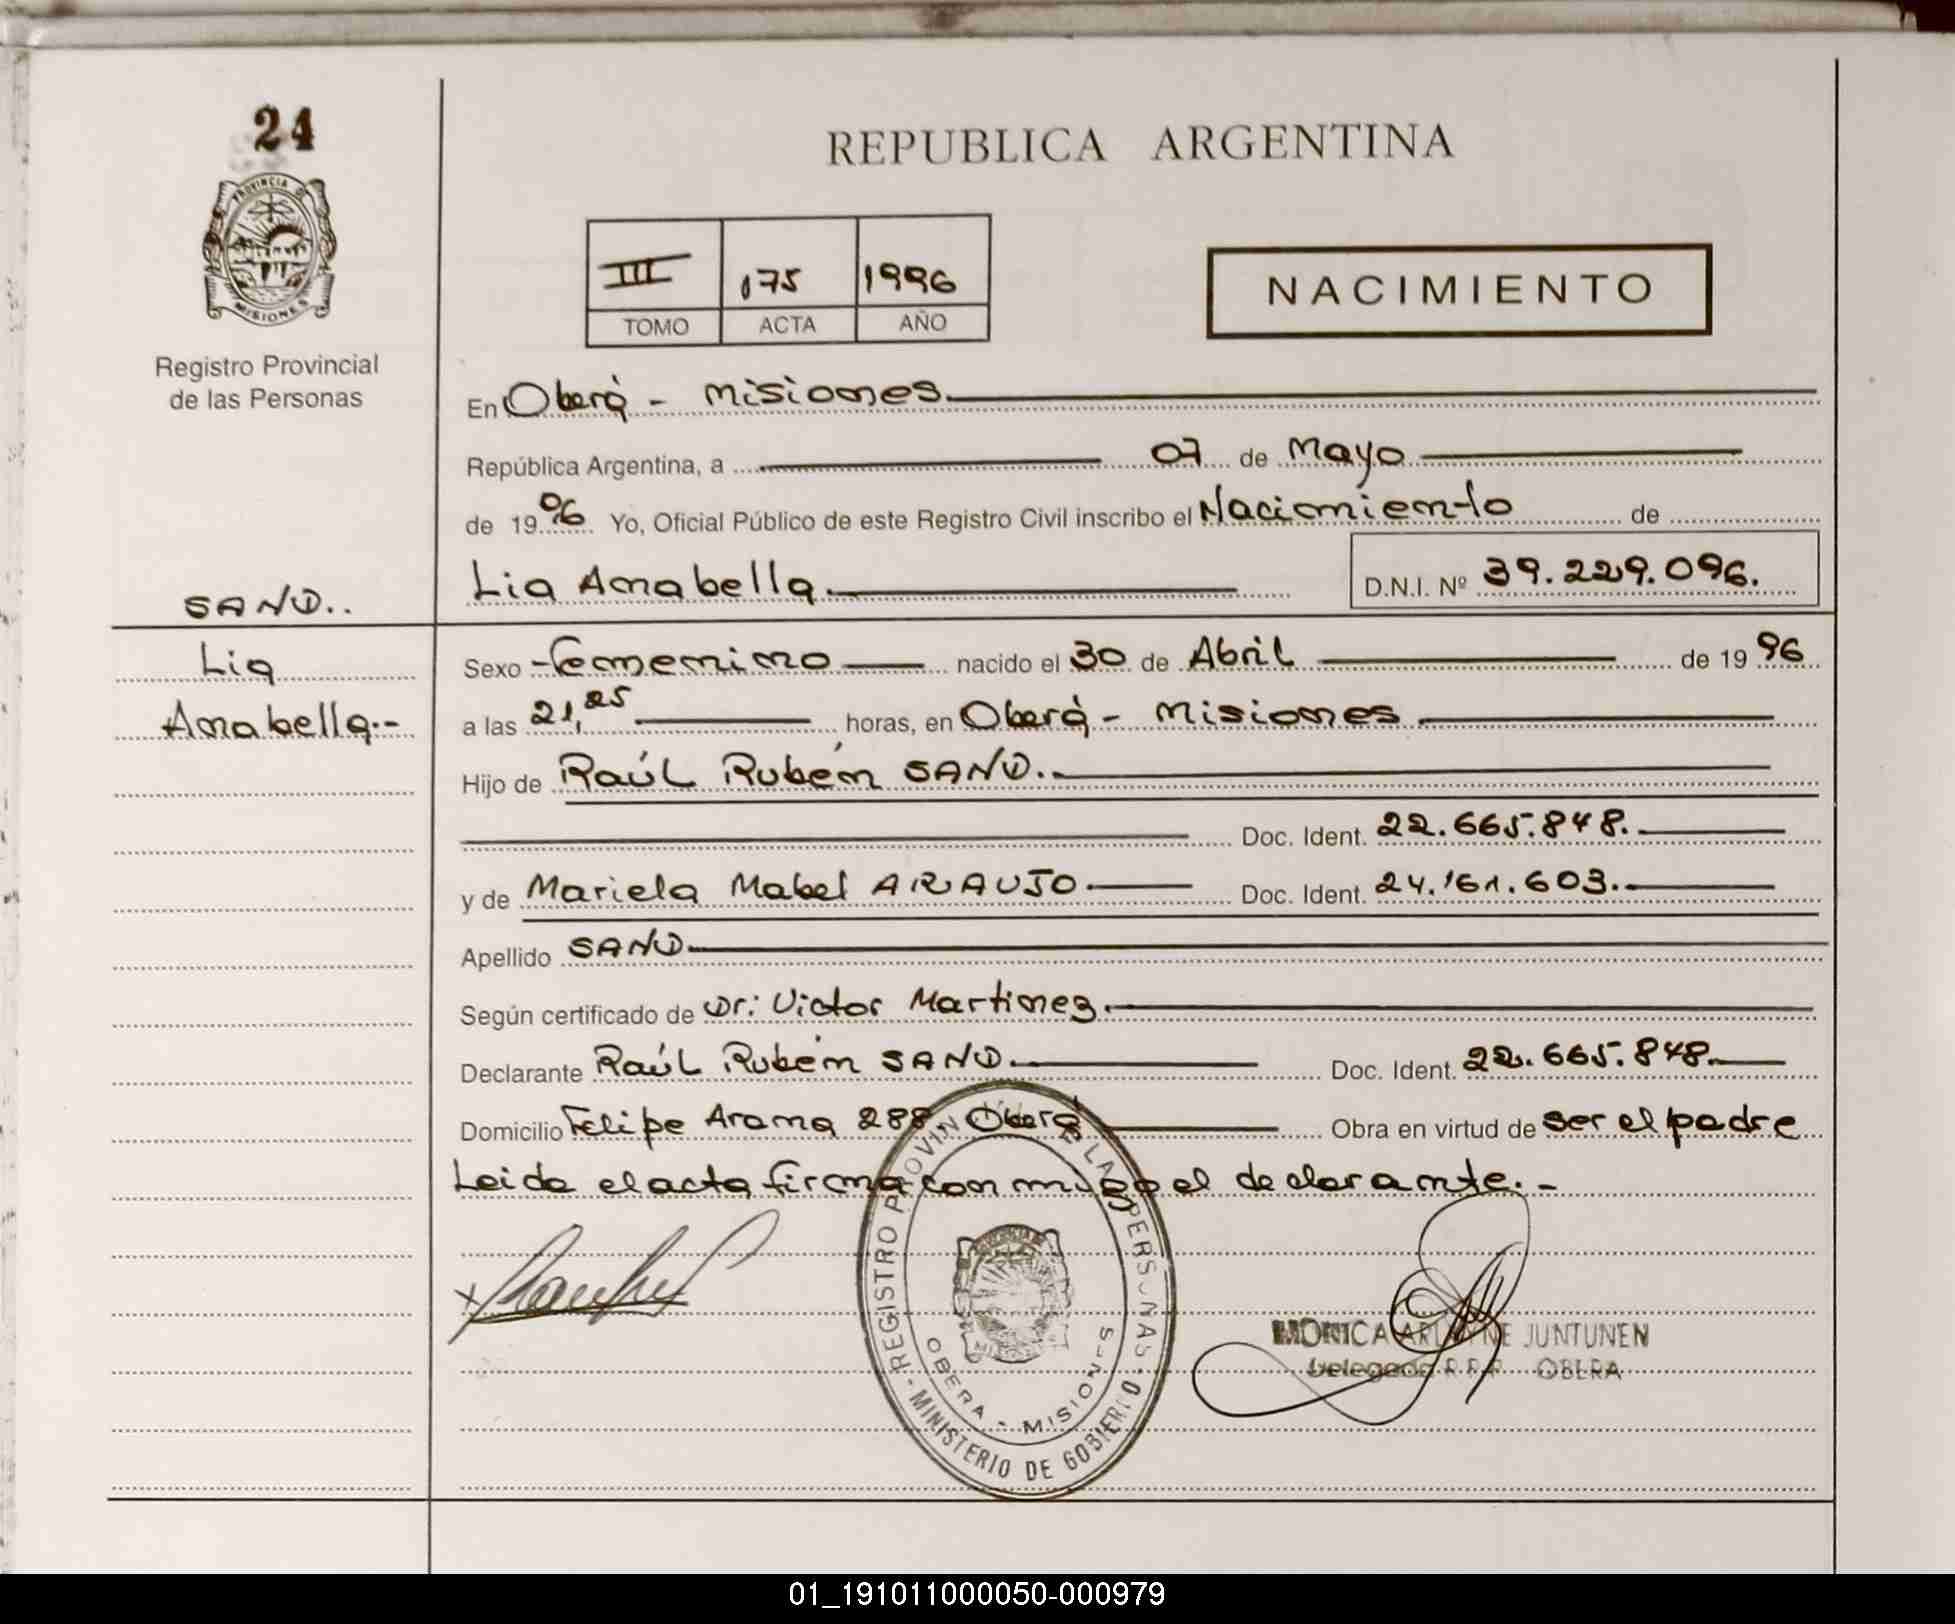 24
PROVINCIA D
MISIONES
Registro Provincial
de las Personas
REPUBLICA ARGENTINA
III 175 1996
TOMO ACTA AÑO
NACIMIENTO
En Oberá - Misiones
República Argentina, a 07 de Mayo
de 19 96 Yo, Oficial Público de este Registro Civil inscribo el Nacimiento de
Lia Anabella D.N.I. Nº 39.229.096.
SAND..
Lia
Anabella.-
Sexo Femenino nacido el 30 de Abril de 19 96
a las 21,25 horas, en Oberá - Misiones
Hijo de Raúl Rubén SAND.
Doc. Ident. 22.665.848.
y de Mariela Mabel ARAUJO Doc. Ident. 24.161.603.
Apellido SAND
Según certificado de Dr: Victor Martinez.
Declarante Raúl Rubén SAND. Doc. Ident. 22.665.848.
Domicilio Felipe Arana 288, Oberá Obra en virtud de ser el padre
Leida el acta firma con migo el declarante.-
REGISTRO PROVIN LAS PERSONAS
MINISTERIO DE GOBIERNO
OBERA - MISIONES
MONICA JUNTUNEN
Delegada R.P.P. OBERA
01_191011000050-000979